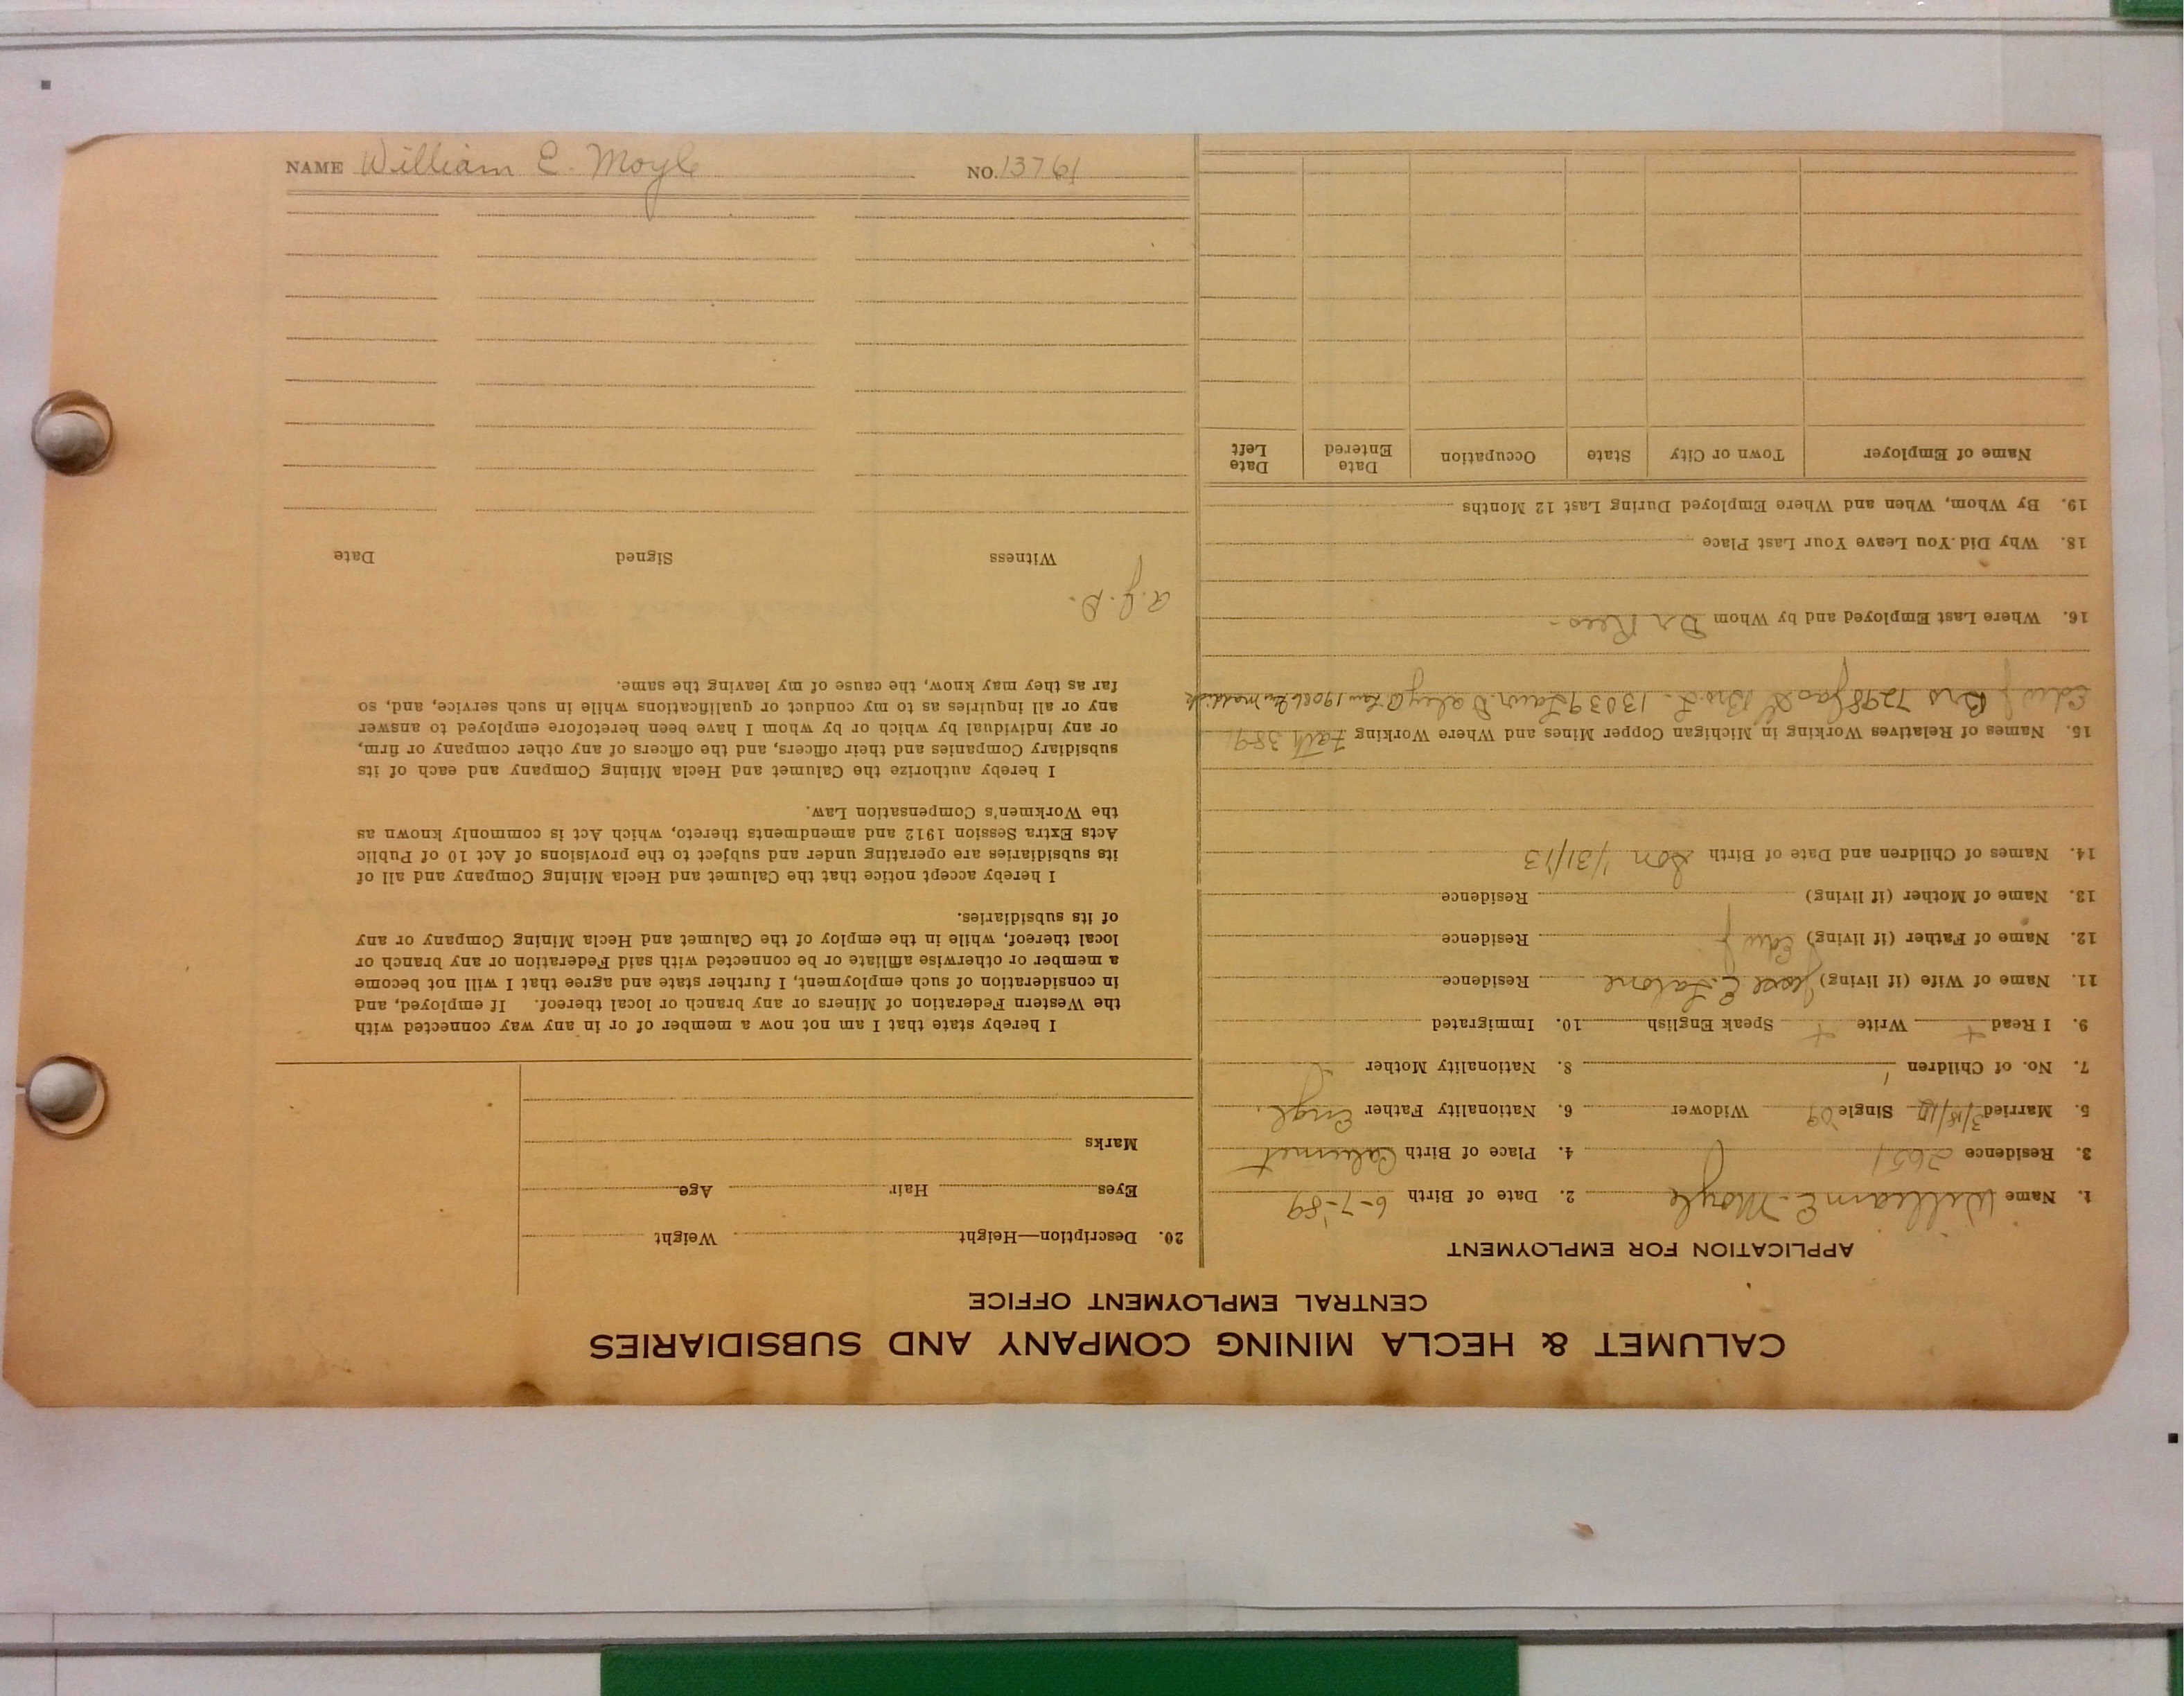 CALUMET & HECLA MINING COMPANY AND SUBSIDIARIES
CENTRAL EMPLOYMENT OFFICE
APPLICATION FOR EMPLOYMENT
1. Name William E. Moyle 2. Date of Birth 6-7-'89
3. Residence 2651 4. Place of Birth Calumet
5. Married Single '09 Widower 6. Nationality Father Engl.
7. No. of Children 1 8. Nationality Mother
9. I Read + Write + Speak English 10. Immigrated
11. Name of Wife (if living) E. Residence
12. Name of Father (if living) Edw J Residence
13. Name of Mother (if living) Residence
14. Names of Children and Date of Birth Son 1/31/13
15. Names of Relatives Working in Michigan Copper Mines and Where Working Fath 389
Edw J Bro 7298 Jas Bro. L. 13039 Law 19086
16. Where Last Employed and by Whom Dr Rees-
18. Why Did You Leave Your Last Place
19. By Whom, When and Where Employed During Last 12 Months
Name of Employer Town or City State Occupation Date Entered Date Left
20. Description—Height Weight
Eyes Hair Age
Marks
I hereby state that I am not now a member of or in any way connected with
the Western Federation of Miners or any branch or local thereof. If employed, and
in consideration of such employment, I further state and agree that I will not become
a member or otherwise affiliate or be connected with said Federation or any branch or
local thereof, while in the employ of the Calumet and Hecla Mining Company or any
of its subsidiaries.
I hereby accept notice that the Calumet and Hecla Mining Company and all of
its subsidiaries are operating under and subject to the provisions of Act 10 of Public
Acts Extra Session 1912 and amendments thereto, which Act is commonly known as
the Workmen's Compensation Law.
I hereby authorize the Calumet and Hecla Mining Company and each of its
subsidiary Companies and their officers, and the officers of any other company or firm,
or any individual by which or by whom I have been heretofore employed to answer
any or all inquiries as to my conduct or qualifications while in such service, and, so
far as they may know, the cause of my leaving the same.
a.J.D.
Witness Signed Date
NAME William E. Moyle NO. 13761